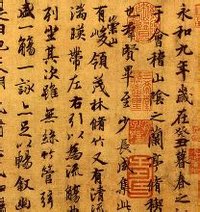 永和九年歲在癸丑暮春之
于會稽山陰之蘭亭脩稧
也羣賢畢至少長咸集此
崇山
有峻領茂林脩竹又有清
湍暎帶左右引以為流觴
列坐其次雖無絲竹管弦
盛一觴一詠亦足以暢敘幽